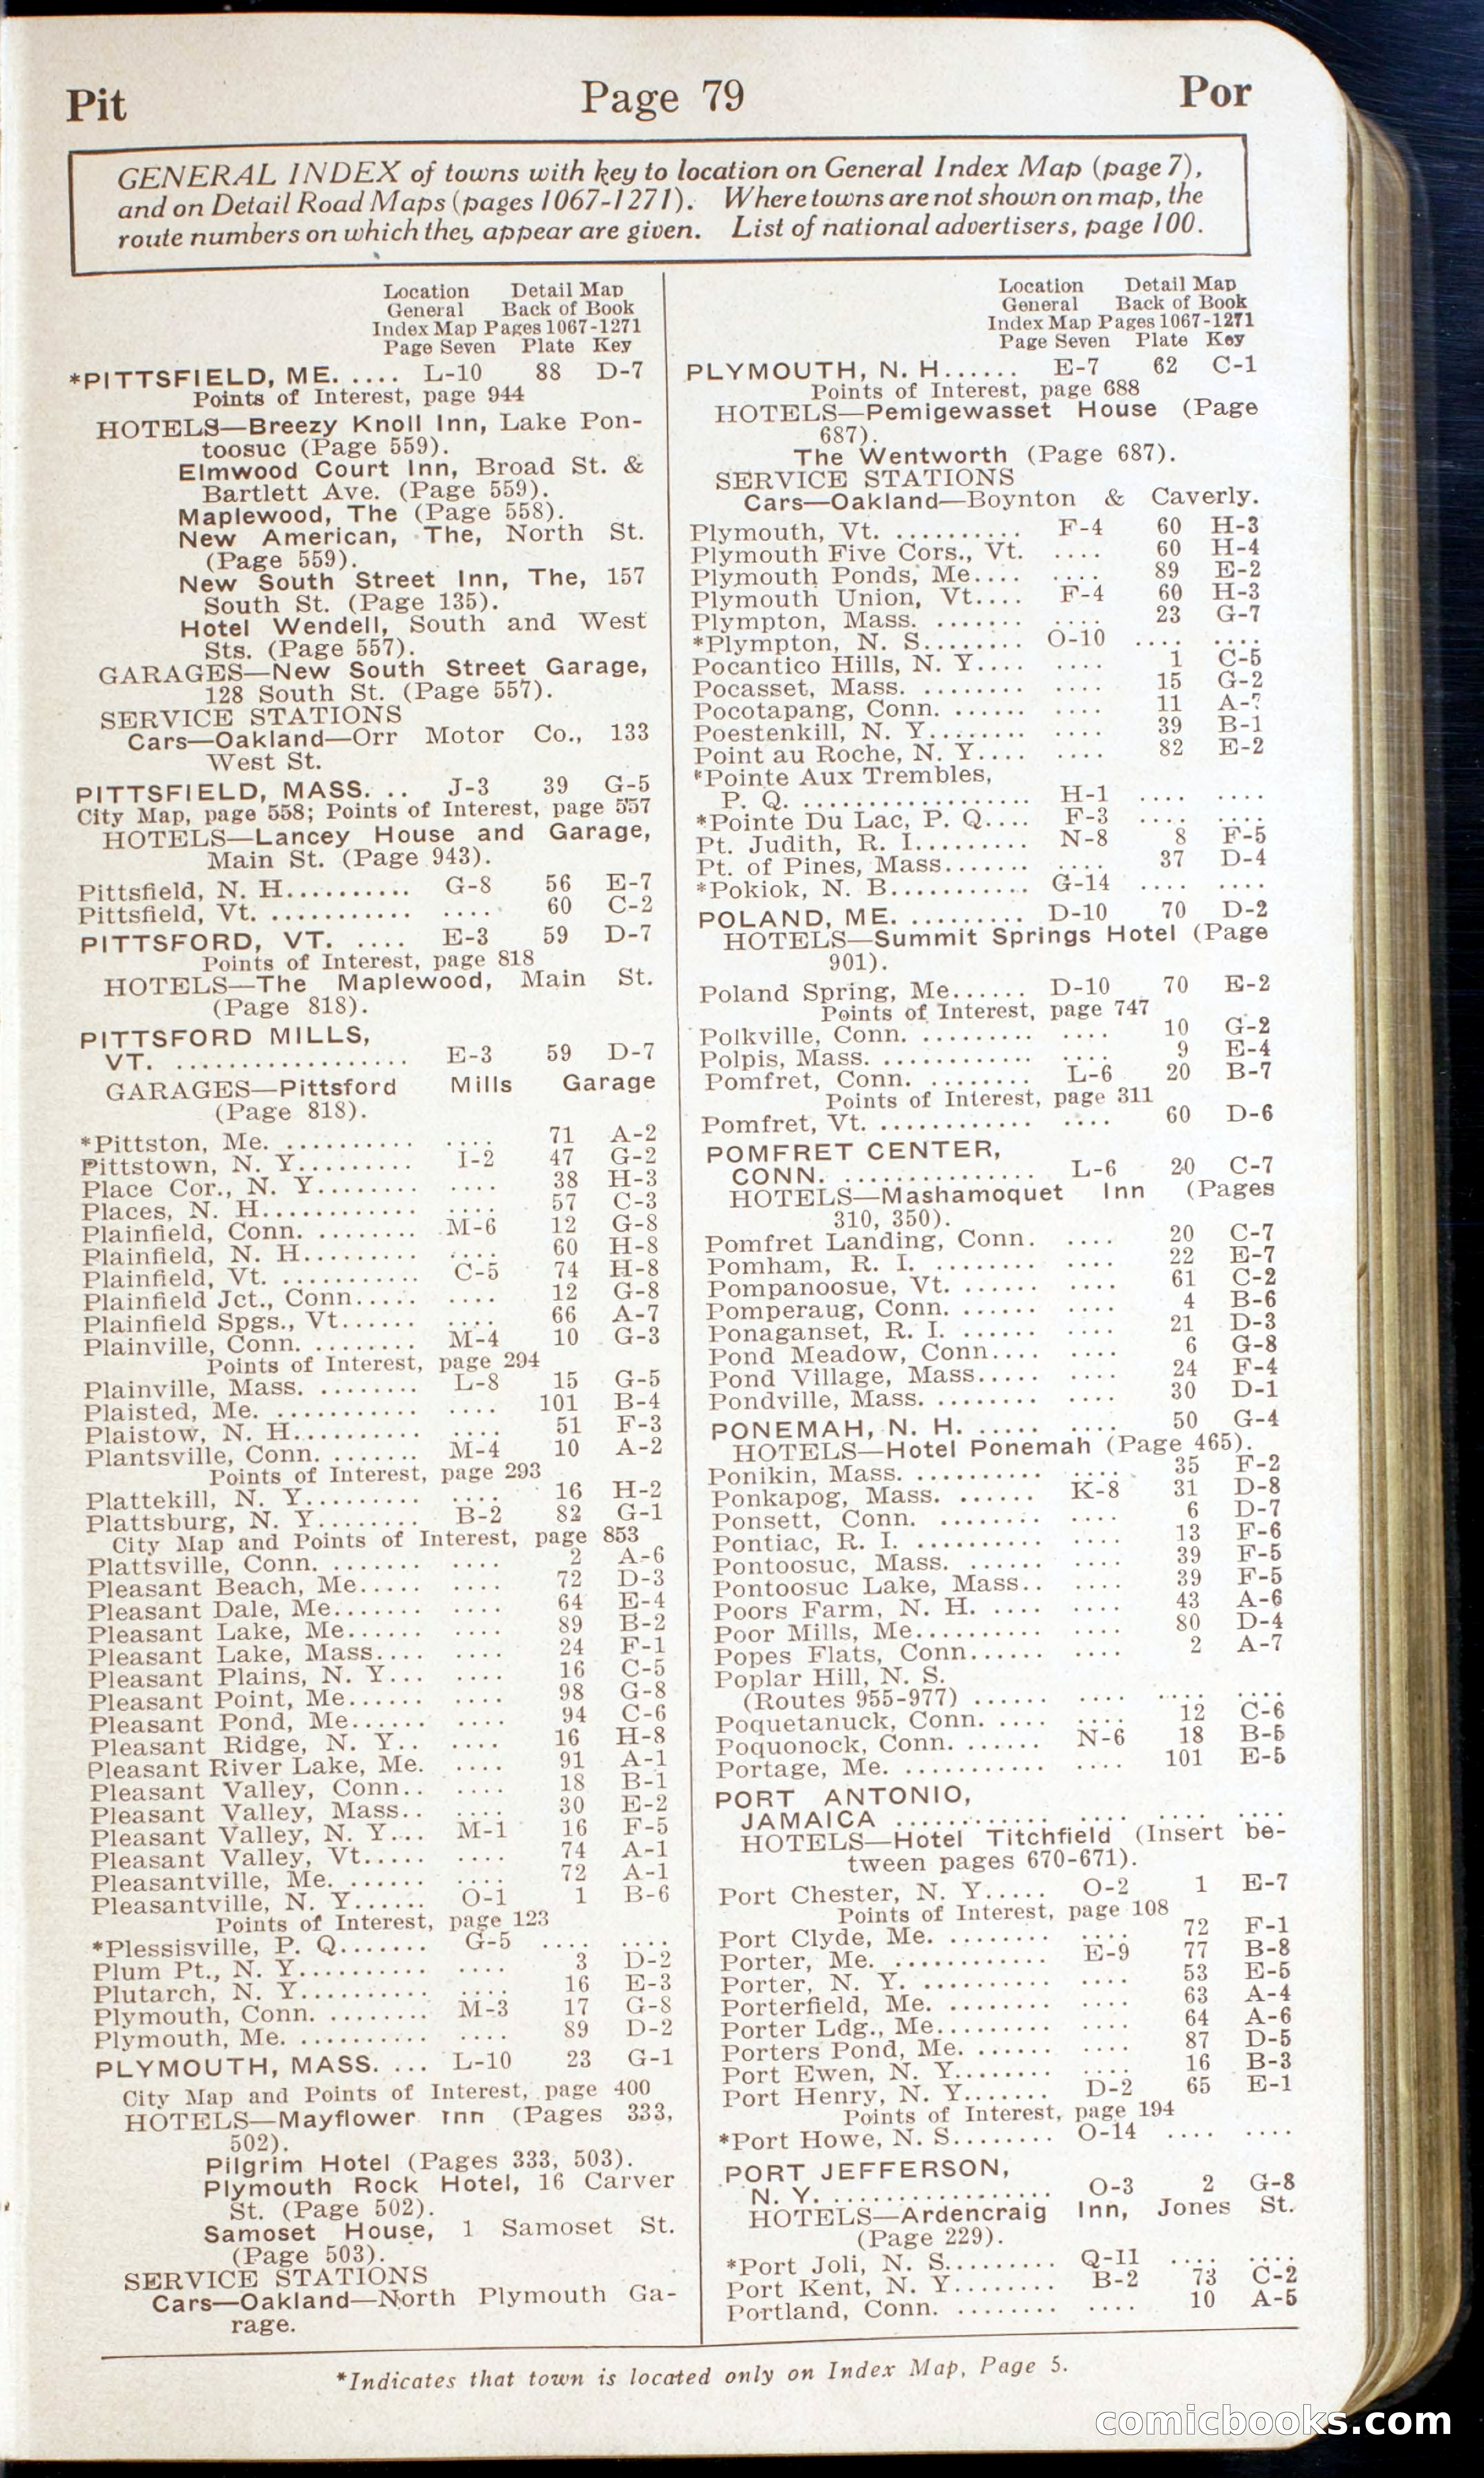 Pit Page 79 Por
GENERAL INDEX of towns with key to location on General Index Map (page 7),
and on Detail Road Maps (pages 1067-1271). Where towns are not shown on map, the
route numbers on which they appear are given. List of national advertisers, page 100.
Location Detail Map
General Back of Book
Index Map Pages 1067-1271
Page Seven Plate Key
*PITTSFIELD, ME. .... L-10 88 D-7
Points of Interest, page 944
HOTELS—Breezy Knoll Inn, Lake Pon-
toosuc (Page 559).
Elmwood Court Inn, Broad St. &
Bartlett Ave. (Page 559).
Maplewood, The (Page 558).
New American, The, North St.
(Page 559).
New South Street Inn, The, 157
South St. (Page 135).
Hotel Wendell, South and West
Sts. (Page 557).
GARAGES—New South Street Garage,
128 South St. (Page 557).
SERVICE STATIONS
Cars—Oakland—Orr Motor Co., 133
West St.
PITTSFIELD, MASS. .. J-3 39 G-5
City Map, page 558; Points of Interest, page 557
HOTELS—Lancey House and Garage,
Main St. (Page 943).
Pittsfield, N. H.......... G-8 56 E-7
Pittsfield, Vt. ........... .... 60 C-2
PITTSFORD, VT. .... E-3 59 D-7
Points of Interest, page 818
HOTELS—The Maplewood, Main St.
(Page 818).
PITTSFORD MILLS,
VT. .................. E-3 59 D-7
GARAGES—Pittsford Mills Garage
(Page 818).
*Pittston, Me. .......... .... 71 A-2
Pittstown, N. Y......... I-2 47 G-2
Place Cor., N. Y........ .... 38 H-3
Places, N. H............ .... 57 C-3
Plainfield, Conn. ........ M-6 12 G-8
Plainfield, N. H......... .... 60 H-8
Plainfield, Vt. ........... C-5 74 H-8
Plainfield Jct., Conn..... .... 12 G-8
Plainfield Spgs., Vt...... .... 66 A-7
Plainville, Conn. ........ M-4 10 G-3
Points of Interest, page 294
Plainville, Mass. ........ L-8 15 G-5
Plaisted, Me. ........... .... 101 B-4
Plaistow, N. H.......... .... 51 F-3
Plantsville, Conn. ....... M-4 10 A-2
Points of Interest, page 293
Plattekill, N. Y......... .... 16 H-2
Plattsburg, N. Y........ B-2 82 G-1
City Map and Points of Interest, page 853
Plattsville, Conn. ....... .... 2 A-6
Pleasant Beach, Me..... .... 72 D-3
Pleasant Dale, Me....... .... 64 E-4
Pleasant Lake, Me...... .... 89 B-2
Pleasant Lake, Mass.... .... 24 F-1
Pleasant Plains, N. Y... .... 16 C-5
Pleasant Point, Me...... .... 98 G-8
Pleasant Pond, Me...... .... 94 C-6
Pleasant Ridge, N. Y.. .... 16 H-8
Pleasant River Lake, Me. .... 91 A-1
Pleasant Valley, Conn.. .... 18 B-1
Pleasant Valley, Mass.. .... 30 E-2
Pleasant Valley, N. Y.... M-1 16 F-5
Pleasant Valley, Vt..... .... 74 A-1
Pleasantville, Me. ...... .... 72 A-1
Pleasantville, N. Y...... O-1 1 B-6
Points of Interest, page 123
*Plessisville, P. Q....... G-5 .... ....
Plum Pt., N. Y.......... .... 3 D-2
Plutarch, N. Y.......... .... 16 E-3
Plymouth, Conn. ........ M-3 17 G-8
Plymouth, Me. .......... .... 89 D-2
PLYMOUTH, MASS. ... L-10 23 G-1
City Map and Points of Interest, page 400
HOTELS—Mayflower Inn (Pages 333,
502).
Pilgrim Hotel (Pages 333, 503).
Plymouth Rock Hotel, 16 Carver
St. (Page 502).
Samoset House, 1 Samoset St.
(Page 503).
SERVICE STATIONS
Cars—Oakland—North Plymouth Ga-
rage.
Location Detail Map
General Back of Book
Index Map Pages 1067-1271
Page Seven Plate Key
PLYMOUTH, N. H...... E-7 62 C-1
Points of Interest, page 688
HOTELS—Pemigewasset House (Page
687).
The Wentworth (Page 687).
SERVICE STATIONS
Cars—Oakland—Boynton & Caverly.
Plymouth, Vt. .......... F-4 60 H-3
Plymouth Five Cors., Vt. .... 60 H-4
Plymouth Ponds, Me.... .... 89 E-2
Plymouth Union, Vt.... F-4 60 H-3
Plympton, Mass. ....... .... 23 G-7
*Plympton, N. S......... O-10 .... ....
Pocantico Hills, N. Y.... .... 1 C-5
Pocasset, Mass. ........ .... 15 G-2
Pocotapang, Conn. ...... .... 11 A-
Poestenkill, N. Y........ .... 39 B-1
Point au Roche, N. Y.... .... 82 E-2
*Pointe Aux Trembles,
P. Q. .................. H-1 .... ....
*Pointe Du Lac, P. Q.... F-3 .... ....
Pt. Judith, R. I......... N-8 8 F-5
Pt. of Pines, Mass....... .... 37 D-4
*Pokiok, N. B........... G-14 .... ....
POLAND, ME. ......... D-10 70 D-2
HOTELS—Summit Springs Hotel (Page
901).
Poland Spring, Me...... D-10 70 E-2
Points of Interest, page 747
Polkville, Conn. ......... .... 10 G-2
Polpis, Mass. ............ .... 9 E-4
Pomfret, Conn. ........ L-6 20 B-7
Points of Interest, page 311
Pomfret, Vt. ............ .... 60 D-6
POMFRET CENTER,
CONN. ............... L-6 20 C-7
HOTELS—Mashamoquet Inn (Pages
310, 350).
Pomfret Landing, Conn. .... 20 C-7
Pomham, R. I. ........ .... 22 E-7
Pompanoosue, Vt. ...... .... 61 C-2
Pomperaug, Conn. ...... .... 4 B-6
Ponaganset, R. I. ...... .... 21 D-3
Pond Meadow, Conn.... .... 6 G-8
Pond Village, Mass..... .... 24 F-4
Pondville, Mass. ........ .... 30 D-1
PONEMAH, N. H. ..... .... 50 G-4
HOTELS—Hotel Ponemah (Page 465).
Ponikin, Mass. .......... .... 35 F-2
Ponkapog, Mass. ...... K-8 31 D-8
Ponsett, Conn. ........ .... 6 D-7
Pontiac, R. I. .......... .... 13 F-6
Pontoosuc, Mass. ...... .... 39 F-5
Pontoosuc Lake, Mass.. .... 39 F-5
Poors Farm, N. H. .... .... 43 A-6
Poor Mills, Me.......... .... 80 D-4
Popes Flats, Conn...... .... 2 A-7
Poplar Hill, N. S.
(Routes 955-977) ...... .... .... ....
Poquetanuck, Conn. ..... .... 12 C-6
Poquonock, Conn. ...... N-6 18 B-5
Portage, Me. ........... .... 101 E-5
PORT ANTONIO,
JAMAICA ............. .... .... ....
HOTELS—Hotel Titchfield (Insert be-
tween pages 670-671).
Port Chester, N. Y..... O-2 1 E-7
Points of Interest, page 108
Port Clyde, Me. ........ .... 72 F-1
Porter, Me. ............ E-9 77 B-8
Porter, N. Y. .......... .... 53 E-5
Porterfield, Me. ........ .... 63 A-4
Porter Ldg., Me......... .... 64 A-6
Porters Pond, Me. ...... .... 87 D-5
Port Ewen, N. Y........ .... 16 B-3
Port Henry, N. Y....... D-2 65 E-1
Points of Interest, page 194
*Port Howe, N. S........ O-14 .... ....
PORT JEFFERSON,
N. Y. .................. O-3 2 G-8
HOTELS—Ardencraig Inn, Jones St.
(Page 229).
*Port Joli, N. S......... Q-11 .... ....
Port Kent, N. Y........ B-2 73 C-2
Portland, Conn. ........ .... 10 A-5
*Indicates that town is located only on Index Map, Page 5.
comicbooks.com